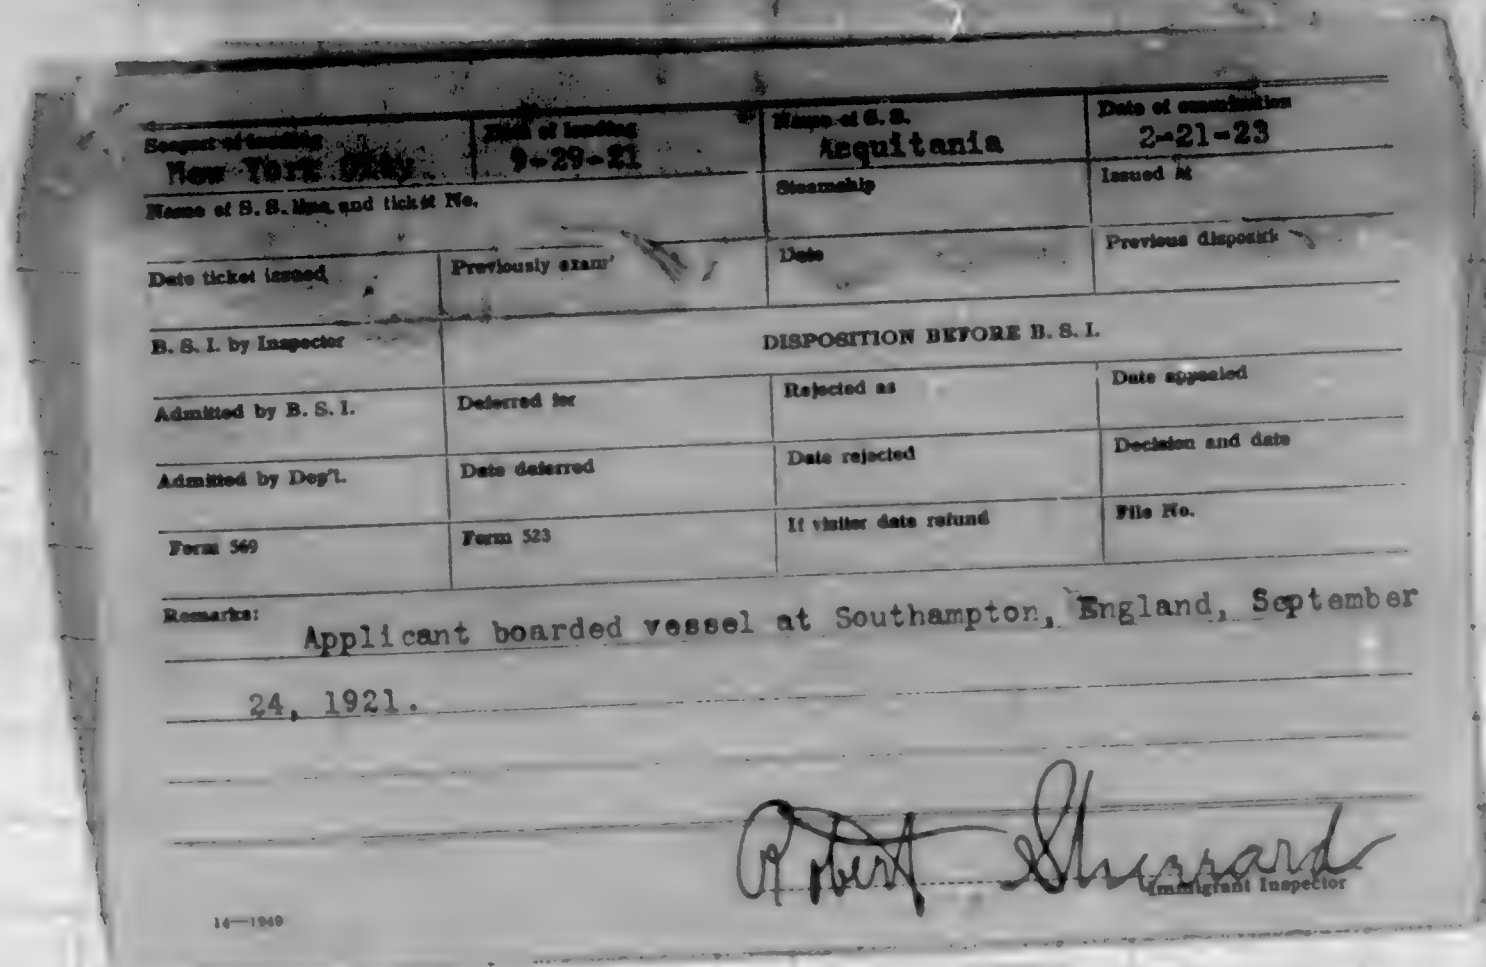 Seaport of landing Date of landing Name of S. S. Date of examination
New York City 9-29-21 Acquitania 2-21-23
Name of S. S. line and ticket No. Steamship Issued at
Date ticket issued Previously exam Date Previous disposit
B. S. I. by Inspector DISPOSITION BEFORE B. S. I.
Admitted by B. S. I. Deferred for Rejected as Date appealed
Admitted by Dep't. Date deferred Date rejected Decision and date
Form 569 Form 523 If visitor date refund File No.
Remarks:
Applicant boarded vessel at Southampton, England, September
24, 1921.
Robert Sherrard
Immigrant Inspector
14—1949